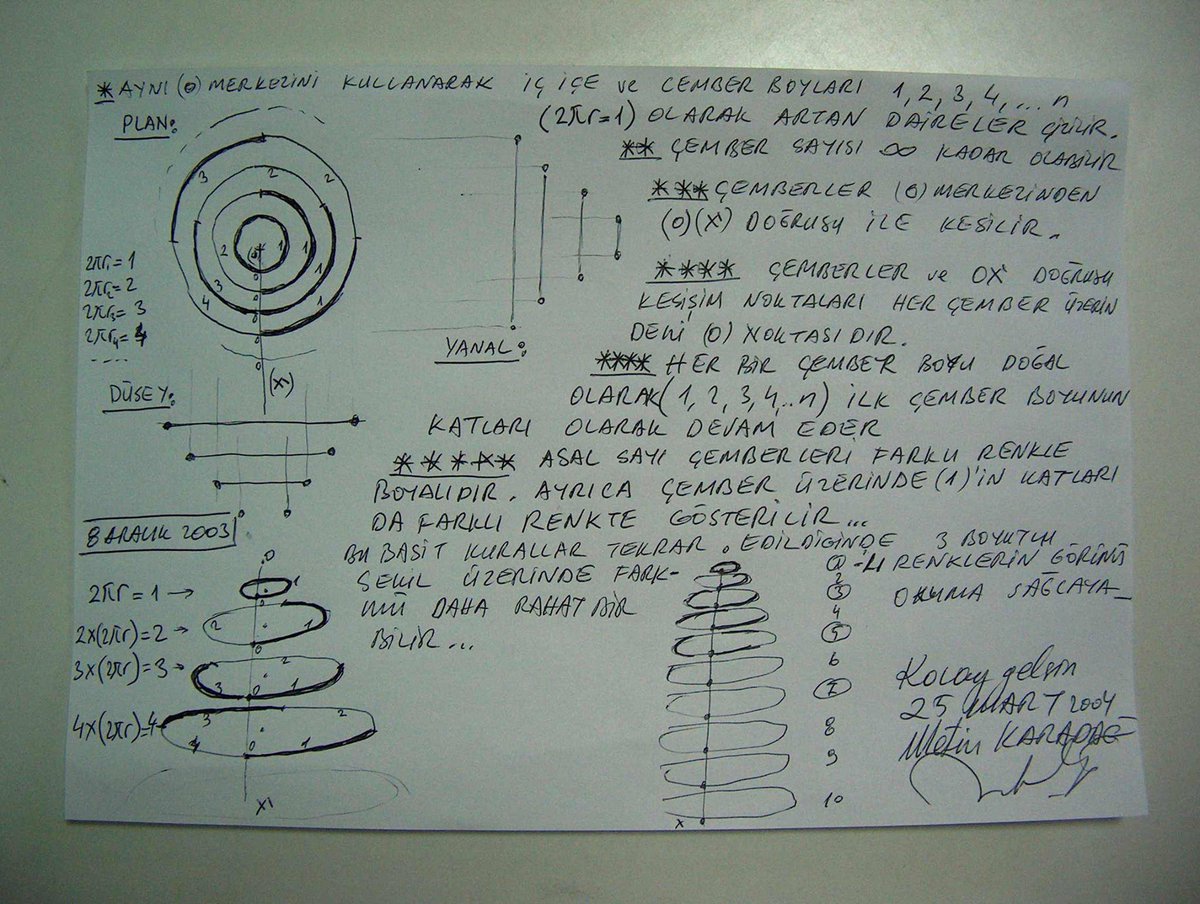 * AYNI (0) MERKEZİNİ KULLANARAK İÇ İÇE ve ÇEMBER BOYLARI 1, 2, 3, 4, ... n
(2πr=1) OLARAK ARTAN DAİRELER ÇİZİLİR.
** ÇEMBER SAYISI ∞ KADAR OLABİLİR
*** ÇEMBERLER (0) MERKEZİNDEN
(0)(X') DOĞRUSU İLE KESİLİR.
**** ÇEMBERLER ve OX' DOĞRUSU
KESİŞİM NOKTALARI HER ÇEMBER ÜZERİN
DEKİ (0) NOKTASIDIR.
**** HER BİR ÇEMBER BOYU DOĞAL
OLARAK (1, 2, 3, 4, ..n) İLK ÇEMBER BOYUNUN
KATLARI OLARAK DEVAM EDER
***** ASAL SAYI ÇEMBERLERİ FARKLI RENKLE
BOYALIDIR. AYRICA ÇEMBER ÜZERİNDE (1)'İN KATLARI
DA FARKLI RENKTE GÖSTERİLİR...
BU BASİT KURALLAR TEKRAR EDİLDİĞİNDE 3 BOYUTLU
ŞEKİL ÜZERİNDE FARK-LI RENKLERİN GÖRÜNÜ
MÜ DAHA RAHAT BİR OKUMA SAĞLAYA_
BİLİR...
PLAN:
3 2 2
2 1 1 1
4 3 1
0
0
0
0
(X')
2πr₁=1
2πr₂=2
2πr₃=3
2πr₄=4
----
YANAL:
DÜŞEY:
8 ARALIK 2003
0
2πr=1 → 1
2x(2πr)=2 → 2 1
0
3x(2πr)=3 → 3 2 1
0
4x(2πr)=4 → 4 3 2 1
0
X'
1
2
3
4
5
6
7
8
9
10
X
Kolay gelsin
25 MART 2004
Metin KARADAĞ